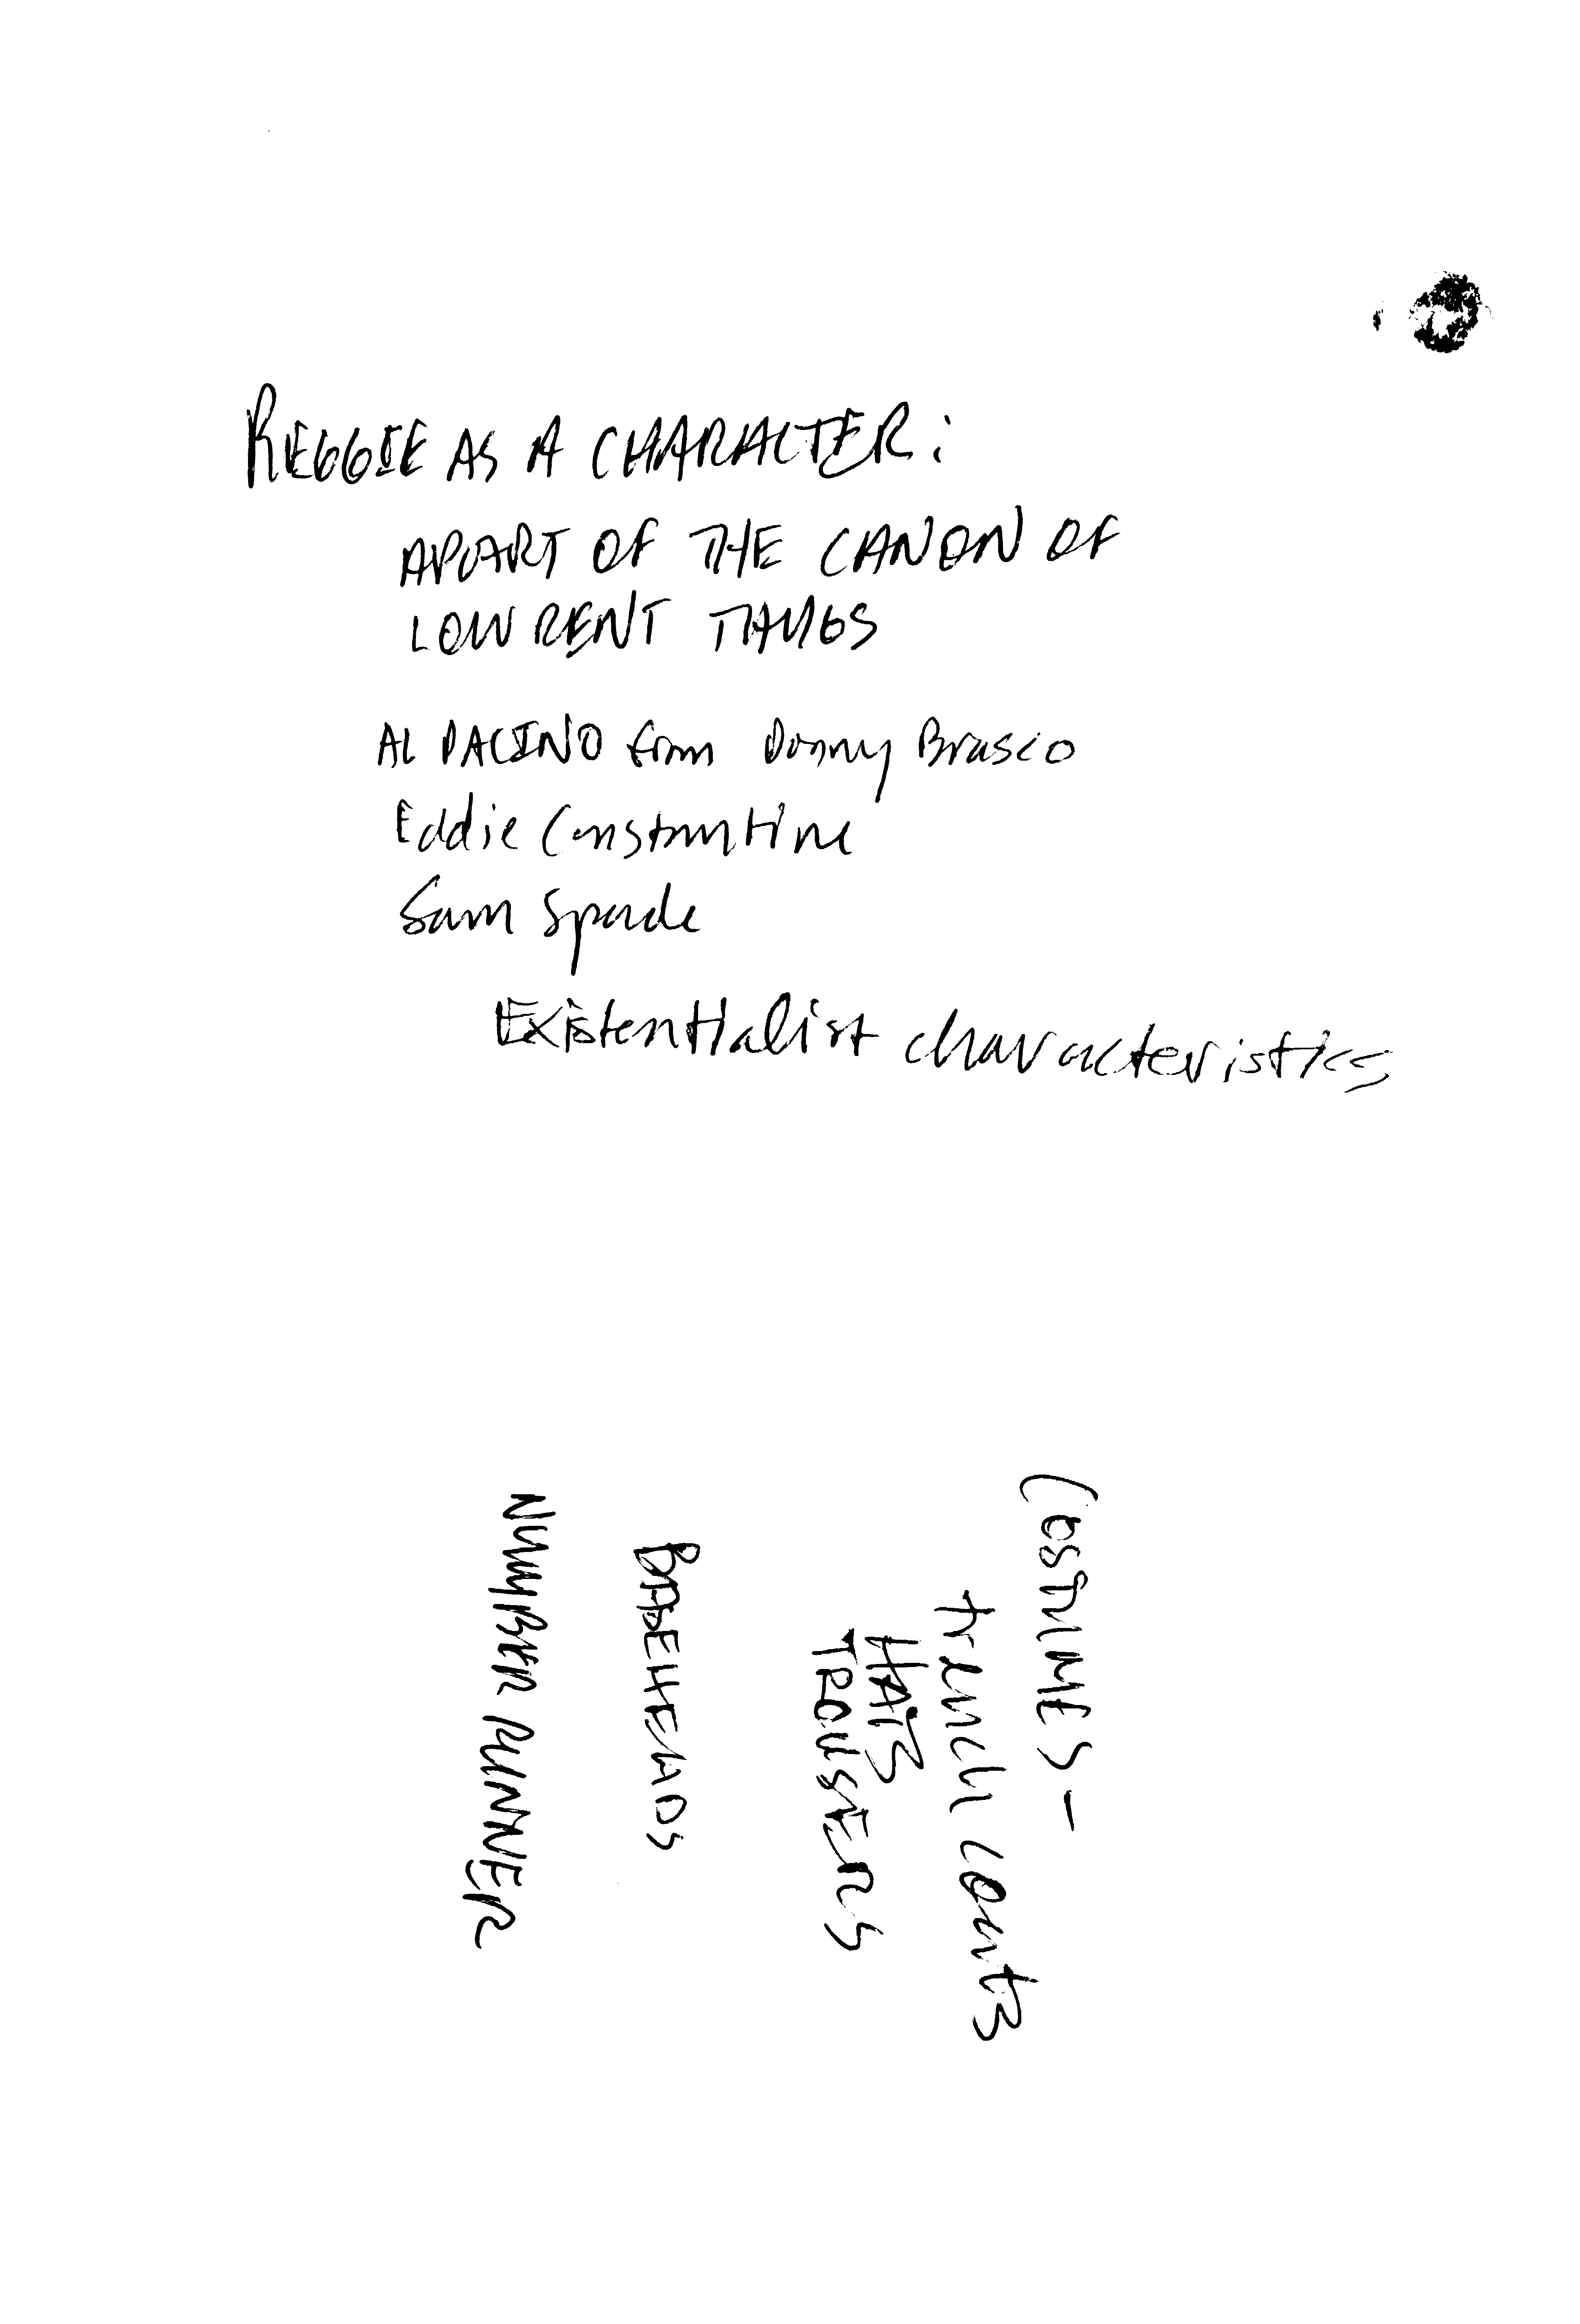 REGGIE AS A CHARACTER:
APART OF THE CANON OF
LOW RENT THUGS
AL PACINO from Donny Brasco
Eddie Constantine
Sam Spade
Existentialist characteristics
COSTUMES -
trench coats
HATS
TROUSERS
BADEHEADS
NUMBER RUNNER